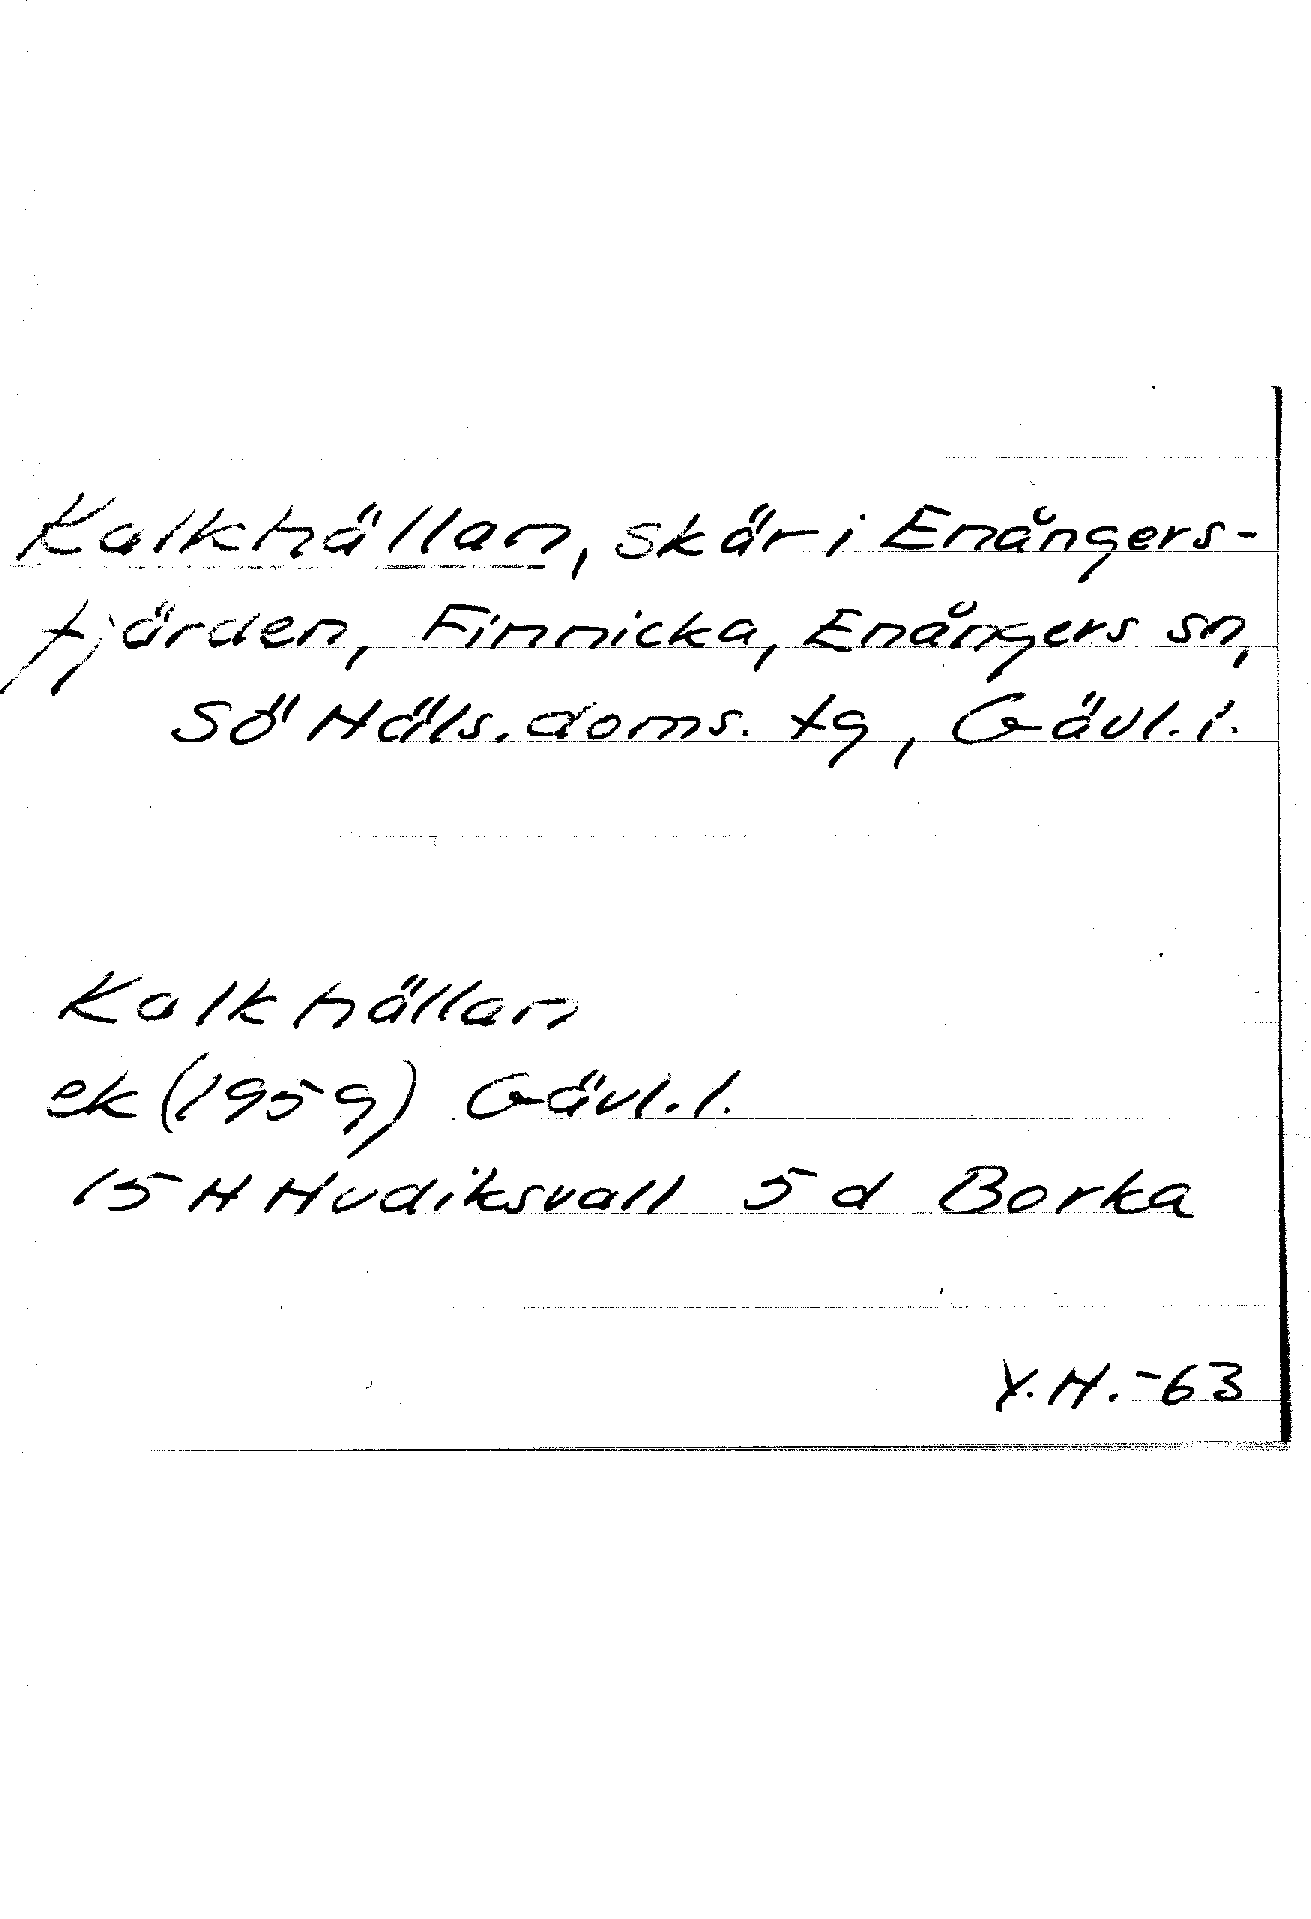 Kalkhällan, skär i Enångers-
fjärden, Finnicka, Enångers sn,
Sö Häls. doms. tg, Gävl. l.
Kalkhällan
ek (1959) Gävl. l.
15 H Hudiksvall 5 d Borka
Y.H.-63